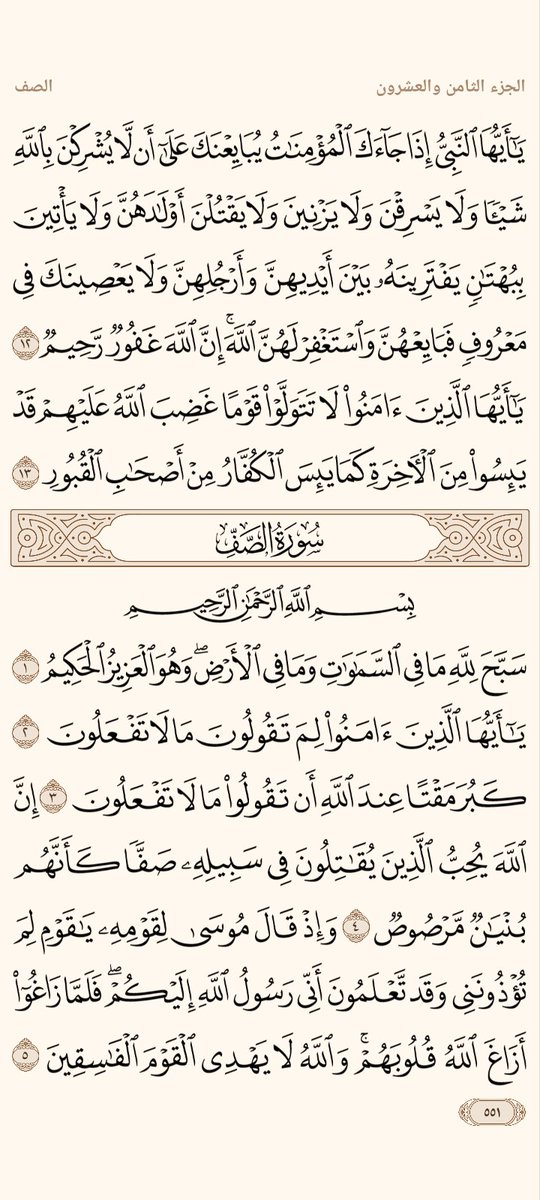 الجزء الثامن والعشرون
الصف
يَـٰٓأَيُّهَا ٱلنَّبِىُّ إِذَا جَآءَكَ ٱلْمُؤْمِنَـٰتُ يُبَايِعْنَكَ عَلَىٰٓ أَن لَّا يُشْرِكْنَ بِٱللَّهِ
شَيْـًٔا وَلَا يَسْرِقْنَ وَلَا يَزْنِينَ وَلَا يَقْتُلْنَ أَوْلَـٰدَهُنَّ وَلَا يَأْتِينَ
بِبُهْتَـٰنٍ يَفْتَرِينَهُۥ بَيْنَ أَيْدِيهِنَّ وَأَرْجُلِهِنَّ وَلَا يَعْصِينَكَ فِى
مَعْرُوفٍ فَبَايِعْهُنَّ وَٱسْتَغْفِرْ لَهُنَّ ٱللَّهَ ۚ إِنَّ ٱللَّهَ غَفُورٌ رَّحِيمٌ ١٢
يَـٰٓأَيُّهَا ٱلَّذِينَ ءَامَنُوا۟ لَا تَتَوَلَّوْا۟ قَوْمًا غَضِبَ ٱللَّهُ عَلَيْهِمْ قَدْ
يَئِسُوا۟ مِنَ ٱلْـَٔاخِرَةِ كَمَا يَئِسَ ٱلْكُفَّارُ مِنْ أَصْحَـٰبِ ٱلْقُبُورِ ١٣
سُورَةُ الصَّفِّ
بِسْمِ ٱللَّهِ ٱلرَّحْمَـٰنِ ٱلرَّحِيمِ
سَبَّحَ لِلَّهِ مَا فِى ٱلسَّمَـٰوَٰتِ وَمَا فِى ٱلْأَرْضِ ۖ وَهُوَ ٱلْعَزِيزُ ٱلْحَكِيمُ ١
يَـٰٓأَيُّهَا ٱلَّذِينَ ءَامَنُوا۟ لِمَ تَقُولُونَ مَا لَا تَفْعَلُونَ ٢
كَبُرَ مَقْتًا عِندَ ٱللَّهِ أَن تَقُولُوا۟ مَا لَا تَفْعَلُونَ ٣ إِنَّ
ٱللَّهَ يُحِبُّ ٱلَّذِينَ يُقَـٰتِلُونَ فِى سَبِيلِهِۦ صَفًّا كَأَنَّهُم
بُنْيَـٰنٌ مَّرْصُوصٌ ٤ وَإِذْ قَالَ مُوسَىٰ لِقَوْمِهِۦ يَـٰقَوْمِ لِمَ
تُؤْذُونَنِى وَقَد تَّعْلَمُونَ أَنِّى رَسُولُ ٱللَّهِ إِلَيْكُمْ ۖ فَلَمَّا زَاغُوٓا۟
أَزَاغَ ٱللَّهُ قُلُوبَهُمْ ۚ وَٱللَّهُ لَا يَهْدِى ٱلْقَوْمَ ٱلْفَـٰسِقِينَ ٥
٥٥١